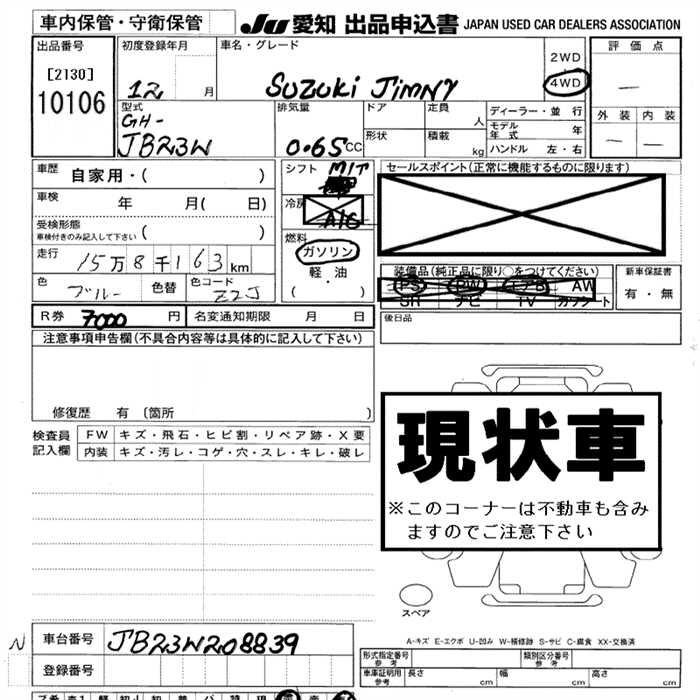 車内保管・守衛保管
JU 愛知 出品申込書 JAPAN USED CAR DEALERS ASSOCIATION
出品番号
[2130]
10106
初度登録年月
12 月
車名・グレード
SUZUKI JIMNY
2WD
4WD
評価点
—
外装 内装
— —
型式
GH-
JB23W
排気量
0.65 CC
ドア
形状
定員
人
積載
kg
ディーラー・並行
モデル年式 年
ハンドル 左・右
車歴
自家用・( )
車検
年 月( 日)
受検形態
車検付きのみ記入して下さい ( )
走行
15万8千163km
色
ブルー
色替
色コード
Z2J
シフト M/T
冷房
A/C
燃料
ガソリン
軽・油
( ・ )
セールスポイント(正常に機能するものに限ります)
装備品(純正品に限り○をつけてください)
PS PW エアB AW
SR ナビ TV カワシート
新車保証書
有・無
R券 7000 円
名変通知期限 月 日
後日品
注意事項申告欄(不具合内容等は具体的に記入して下さい)
修復歴 有 〔箇所 )
検査員
記入欄
FW キズ・飛石・ヒビ割・リペア跡・X要
内装 キズ・汚レ・コゲ・穴・スレ・キレ・破レ
現状車
※このコーナーは不動車も含み
ますのでご注意下さい
スペア
A-キズ E-エクボ U-凹み W-補修跡 S-サビ C-腐食 XX-交換済
N
車台番号 JB23W208839
登録番号
形式指定番号
参考
類別区分番号
参考
車庫証明用
参考
長さ cm
幅 cm
高さ cm